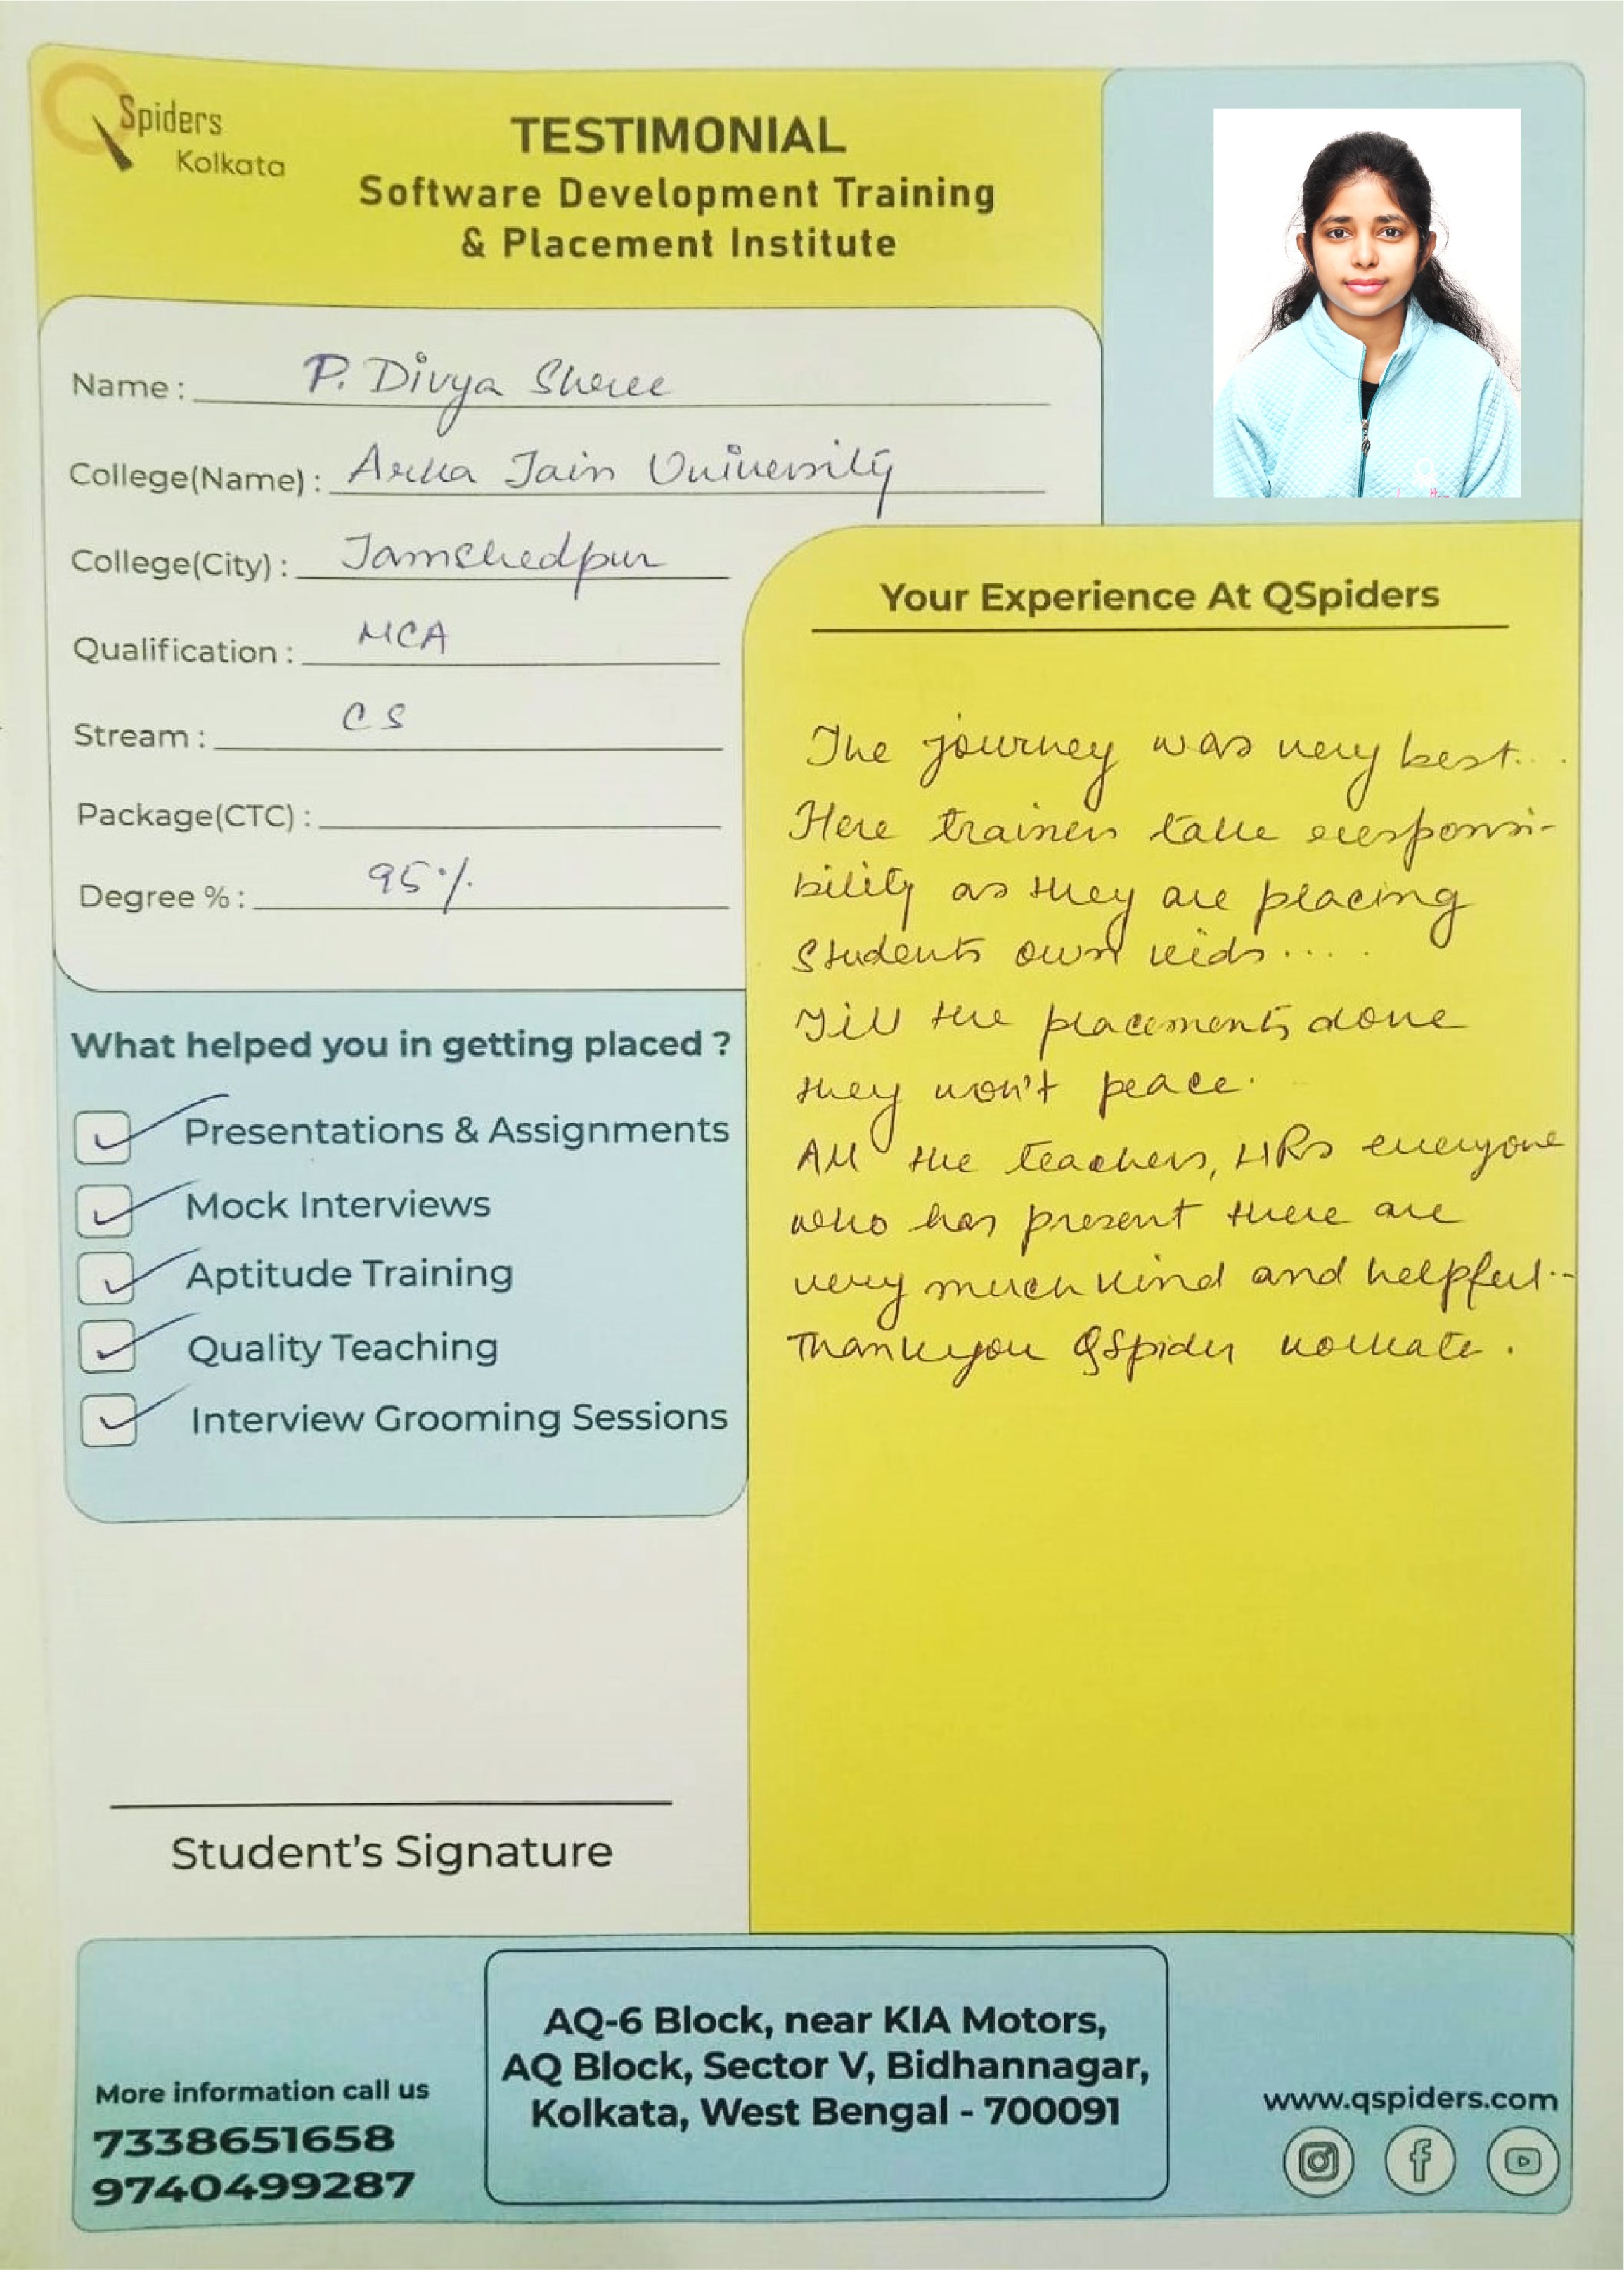 QSpiders
Kolkata
TESTIMONIAL
Software Development Training
& Placement Institute
Name : P. Divya Shree
College(Name) : Arka Jain University
College(City) : Jamshedpur
Qualification : MCA
Stream : CS
Package(CTC) :
Degree % : 95%
What helped you in getting placed ?
Presentations & Assignments
Mock Interviews
Aptitude Training
Quality Teaching
Interview Grooming Sessions
Student's Signature
Your Experience At QSpiders
The journey was very best...
Here trainers take responsi-
bility as they are placing
Students own kids.....
Till the placements done
they won't peace.
All the teachers, HRs everyone
who has present there are
very much kind and helpful..
Thankyou QSpider Kolkata.
More information call us
7338651658
9740499287
AQ-6 Block, near KIA Motors,
AQ Block, Sector V, Bidhannagar,
Kolkata, West Bengal - 700091
www.qspiders.com